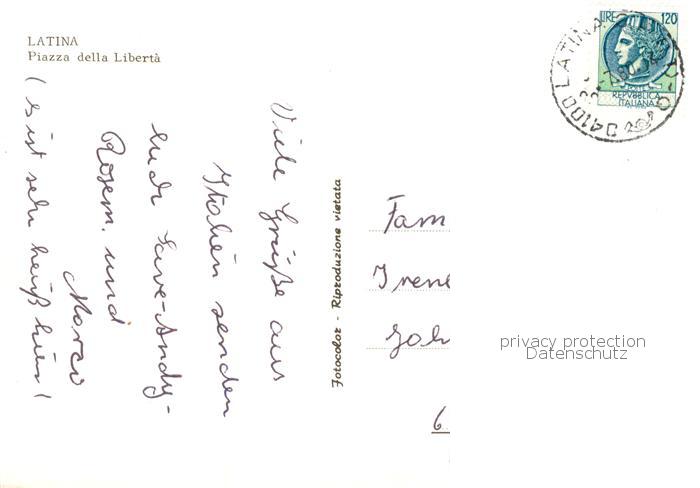 LATINA
Piazza della Libertà
Viele Grüße aus
Italien senden
Euch Save-Andy-
Rosem. und
Marco
(s ist sehr heiß hier)
Fotocolor - Riproduzione vietata
Fam
Irene
Joh
6
LIRE 120
REPVBBLICA
ITALIANA
04100 LATINA
privacy protection
Datenschutz